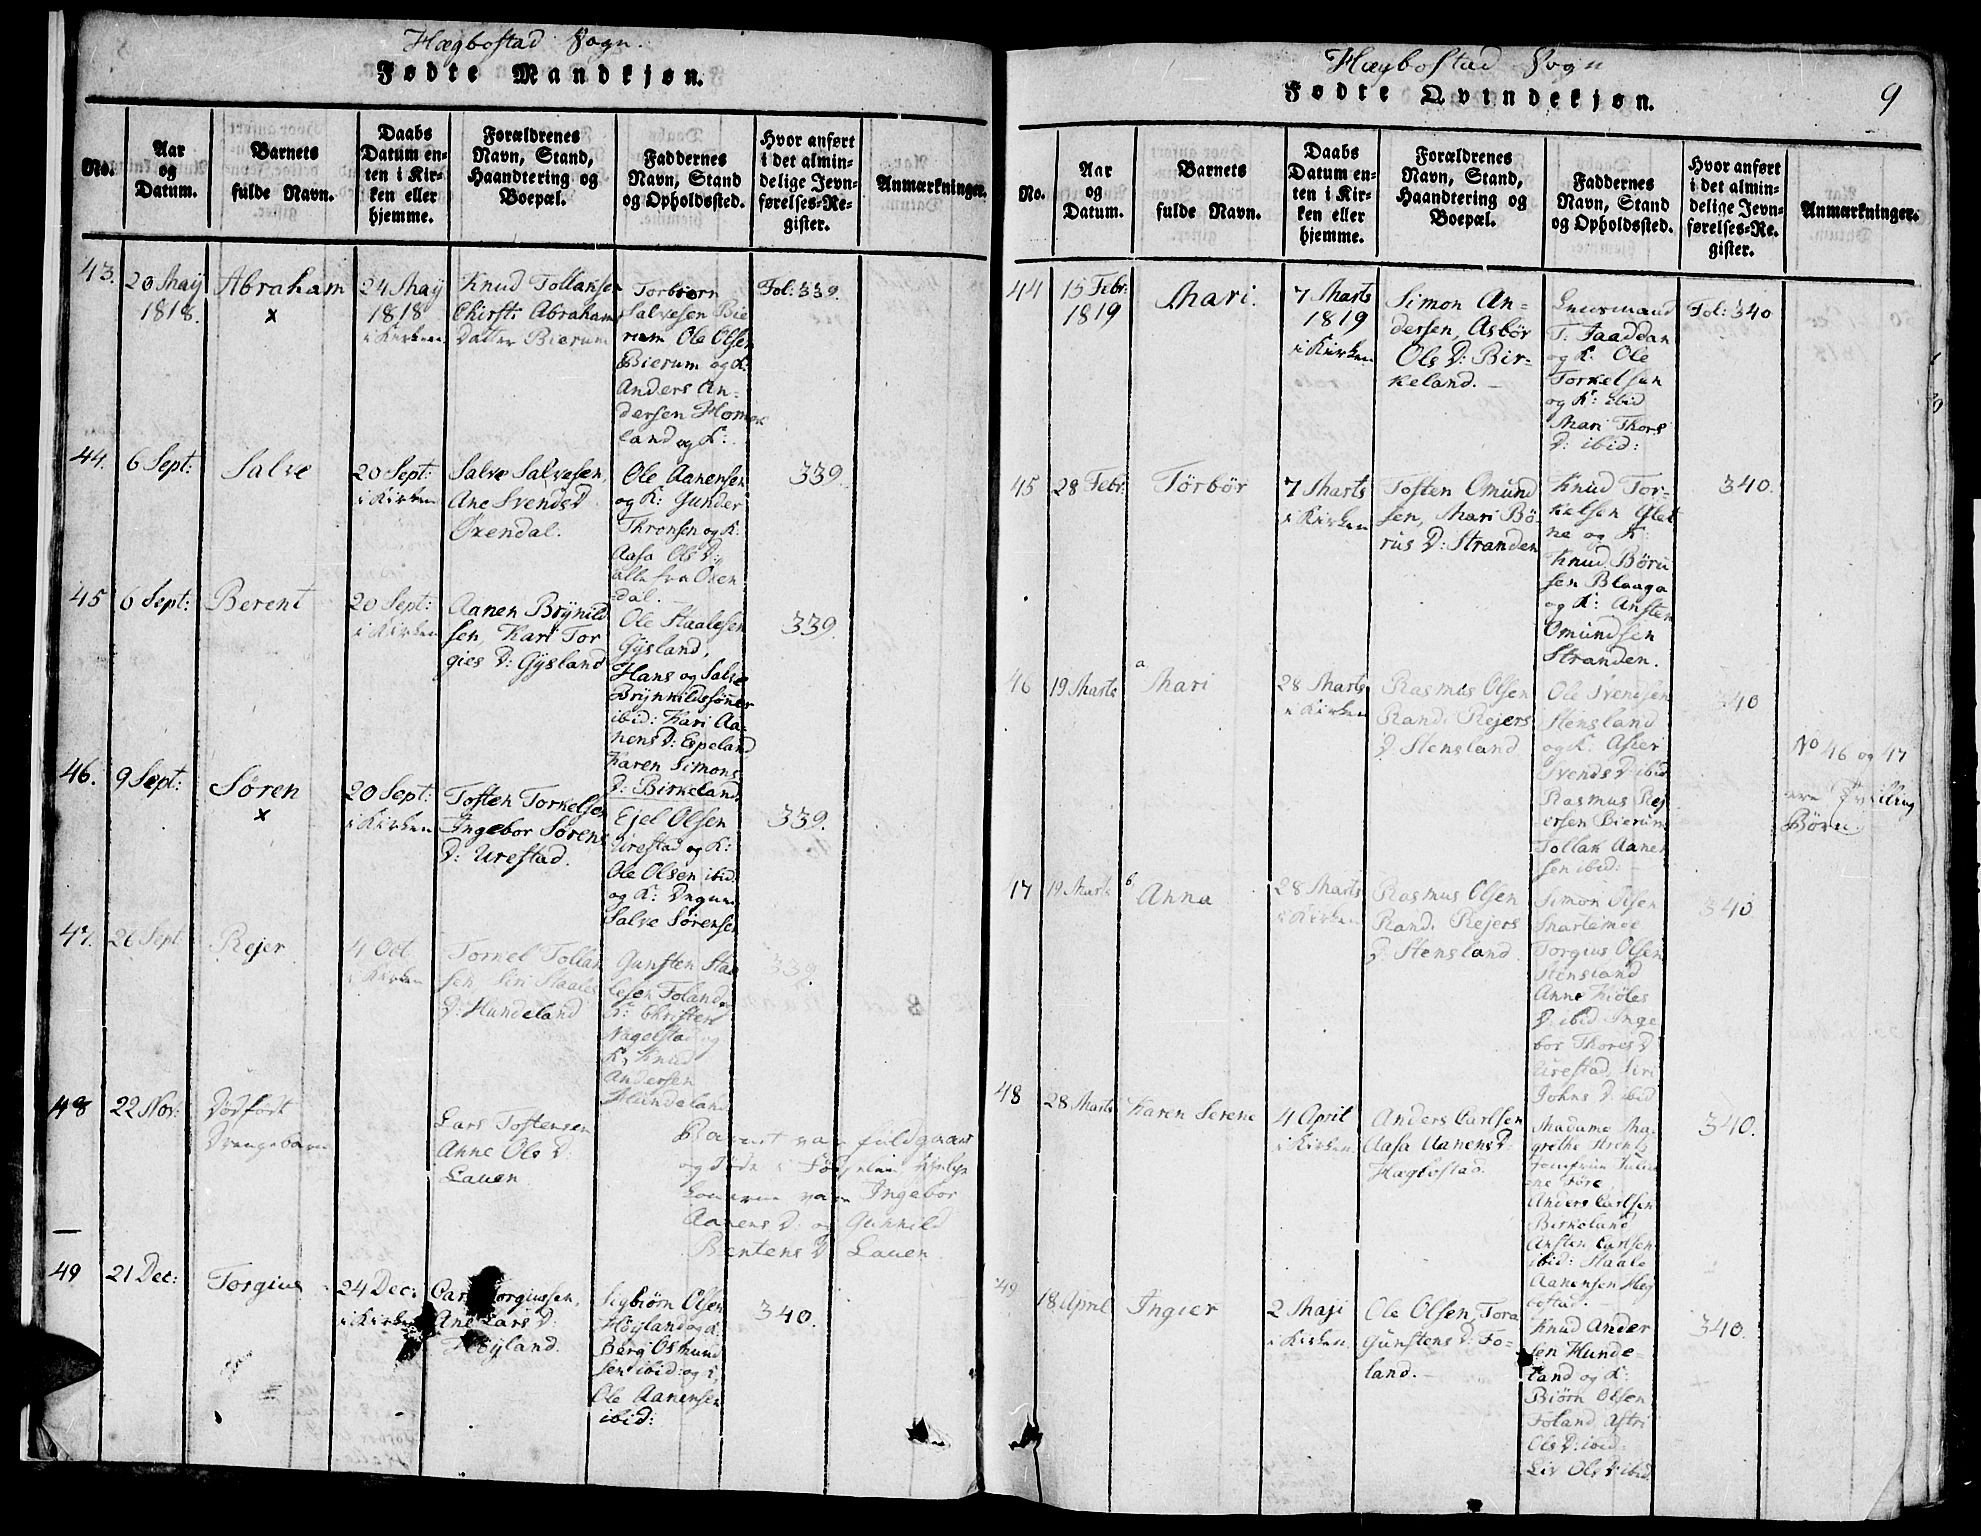 Hægbostad Sogn.
Fødte Mandkjøn.
No.
Aar
og
Datum.
Barnets
fulde Navn.
Daabs
Datum en-
ten i Kir-
ken eller
hjemme.
Forældrenes
Navn, Stand,
Haandtering og
Boepæl.
Faddernes
Navn, Stand
og Opholdssted.
Hvor anført
i det almin-
delige Jevn-
førelses-Re-
gister.
Anmærkninger.
43.
20 Maij
1818.
Abraham
x
24 Maij
1818
i Kirken
Knud Tollaksen
Chirsti Abraham
Datter Bierum
Torbiørn
Salvesen Bie
rum Ole Olsen
Bierum og K:
Anders An-
dersen Homme
land og K:
Fol: 339.
44.
6 Sept:
Salve
20 Sept:
i Kirken
Salve Salvesen,
Ane Svends D
Øxendal.
Ole Aanensen
og K: Gunder
Thronsen og K:
Aasa Ols D:
alle fra Øxen
dal.
339.
45
6 Sept:
Berent
20 Sept:
i Kirken
Aanen Brÿnild
sen, Kari Tor
gies D: Gÿsland
Ole Staalesen
Gÿsland,
Hans og Salve
Brÿnildssønner
ibid: Kari Aa-
nens D: Espeland
Karen Simons
D: Birkeland.
339.
46.
9 Sept:
Søren
x
20 Sept:
i Kirken
Tosten Torkelsen
Ingebor Sørens
D: Urestad.
Ejel Olsen
Urestad og K:
Ole Olsen ibid:
og K:
Salve Sørensen
339.
47.
26 Sept
Rejer
4 Oct
i Kirken
Torkel Tollak
sen, Siri Staales
D: Hundeland
Gunsten Staa
lesen Foland og
K: Christen
Nagelstad og
K: Knud
Andersen
Hundeland
339
48
22 Nov:
Dødfødt
Drengebarn
Lars Tostensen
Anne Ols D:
Lauen
Barnet var fuldgaaet
og døde i Fødselen Hielpe
konerne vare Ingebor
Aanens D: og Gunnild
Bentens D: Lauen.
49
21 Dec:
Torgius
24 Dec:
i Kirken
Torgiussen,
Ane Lars D:
Høÿland.
Sigbiørn Olsen
Høÿland og K.
Berg Osmund
sen ibid: og K,
Ole Aanensen
ibid:
340.
Hægbostad Sogn
9
Fødte Qvindekjøn.
No.
Aar
og
Datum.
Barnets
fulde Navn.
Daabs
Datum en-
ten i Kir-
ken eller
hjemme.
Forældrenes
Navn, Stand,
Haandtering og
Boepæl.
Faddernes
Navn, Stand
og Opholdssted.
Hvor anført
i det almin-
delige Jevn-
førelses-Re-
gister.
Anmærkninger.
44
15 Febr:
1819
Mari.
7 Marts
1819
i Kirken
Simon An-
dersen, Asbør
Ols D: Bir-
keland.
T: Jaaddan
og K: Ole
Torkelsen
og K: ibid
Mari Thors
D: ibid:
Fol: 340
45
28 Febr:
Tørbør
7 Marts
i Kirken
Tosten Omund
sen, Mari Bø-
rus D: Stranden
Knud Tor-
kelsen Glet
ne og K:
Knud Børu
sen Blaaga
og K: Ansten
Omundsen
Stranden.
340.
46
19 Marts
a
Mari
28 Marts
i Kirken
Rasmus Olsen
Rand. Rejers
D: Stensland
Ole Svendsen
Stensland
og K: Aster
Svends D ibid
Rasmus Rej
ersen Bierum
Tollak Aanen
sen ibid:
340
No 46 og 47
ere Tvilling
Børn.
47
19 Marts
b
Anna
28 Marts
i Kirken
Rasmus Olsen
Rand. Rejers
D: Stensland.
Simon Olsen
Snartemoe
Torgius Olsen
Stensland
Anne Kiøles
D: ibid Inge
bor Thores D
Urestad, Siri
Johns D: ibid
340
48
28 Marts
Karen Serene
4 April
i Kirken
Anders Carlsen
Aasa Aanens D:
Hægbostad.
Madame Ma-
grethe Arentz
Jomfrue Julia
ne Fore,
Anders Carlsen
Birkeland
Ansten Carlsen
ibid: Staale
Aanensen Hæg
bostad.
340.
49
18 April
Ingier
2 Maji
i Kirken
Ole Olsen, Tora
Gunstens D: Fo-
land.
Knud Ander
sen Hunde-
land og K:
Biørn Olsen
Foland, Astri
Ols D: ibid:
Liv Ols D: ibid
340.